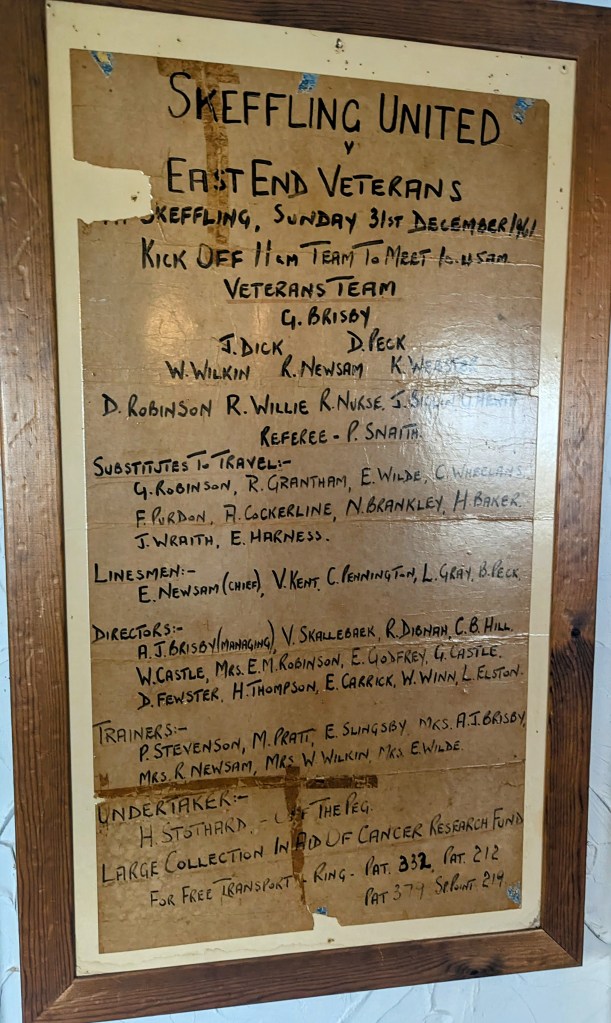 SKEFFLING UNITED
V
EAST END VETERANS
SKEFFLING, SUNDAY 31ST DECEMBER 1961
KICK OFF 11 am TEAM TO MEET 10.45am
VETERANS TEAM
G. BRISBY
J. DICK D. PECK
W. WILKIN R. NEWSAM K. WEBSTER
D. ROBINSON R. WILLIE R. NURSE. J.
REFEREE - P. SNAITH.
SUBSTITUTES TO TRAVEL:-
G. ROBINSON, R. GRANTHAM, E. WILDE, C. WHEELANS
F. PURDON, A. COCKERLINE, N. BRANKLEY, H. BAKER.
J. WRAITH, E. HARNESS.
LINESMEN:-
E. NEWSAM (CHIEF), V. KENT, C. PENNINGTON, L. GRAY, B. PECK.
DIRECTORS:-
A.J. BRISBY (MANAGING), V. SKALLEBAEK, R. DIBNAH, C.B. HILL.
W. CASTLE, MRS. E.M. ROBINSON, E. GODFREY, G. CASTLE.
D. FEWSTER, H. THOMPSON, E. CARRICK, W. WINN, L. ELSTON.
TRAINERS:-
P. STEVENSON, M. PRATT, E. SLINGSBY, MRS. A.J. BRISBY,
MRS. R. NEWSAM, MRS W WILKIN, MRS. E. WILDE.
UNDERTAKER:-
H. STOTHARD. - OFF THE PEG.
LARGE COLLECTION IN AID OF CANCER RESEARCH FUND
FOR FREE TRANSPORT - RING - PAT. 332, PAT. 212
PAT 379 SP. POINT. 219.